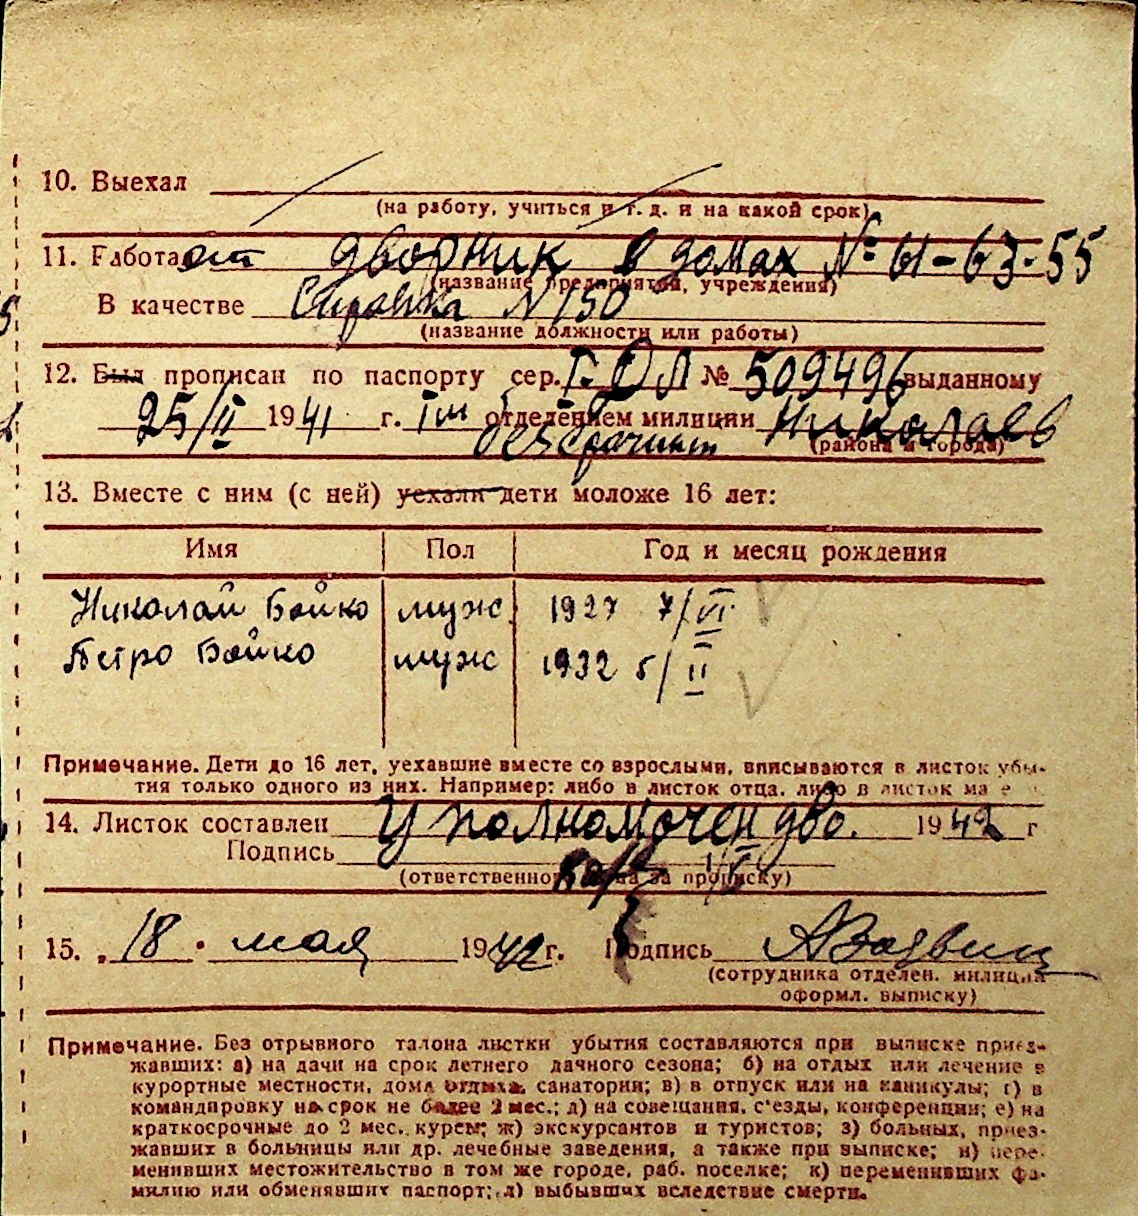 10. Выехал
(на работу, учиться и т. д. и на какой срок)
11. Работает дворник в домах № 61-63-55
(название предприятия, учреждения)
В качестве Справка N 150
(название должности или работы)
12. Был прописан по паспорту сер. № 509496 выданному
25/II 1941 г. Iм отделением милиции Николаев
безсрочний (района и города)
13. Вместе с ним (с ней) уехали дети моложе 16 лет:
Имя Пол Год и месяц рождения
Николай Бойко муж. 1927 7/VI
Петро Бойко муж 1932 5/II
Примечание. Дети до 16 лет, уехавшие вместе со взрослыми, вписываются в листок убы-
тия только одного из них. Например: либо в листок отца, либо в листок ма
14. Листок составлен Уполномочен дво. 1942 г
Подпись
(ответственного за прописку)
15. „18" мая 1942 г. Подпись
(сотрудника отделен. милиции
оформл. выписку)
Примечание. Без отрывного талона листки убытия составляются при выписке приез-
жавших: а) на дачи на срок летнего дачного сезона; б) на отдых или лечение в
курортные местности, дома отдыха, санатории; в) в отпуск или на каникулы; г) в
командировку на срок не более 2 мес.; д) на совещания, с'езды, конференции; е) на
краткосрочные до 2 мес. курсы; ж) экскурсантов и туристов; з) больных, приез-
жавших в больницы или др. лечебные заведения, а также при выписке; и) пере-
менивших местожительство в том же городе, раб. поселке; к) переменивших фа-
милию или обменявших паспорт; л) выбывших вследствие смерти.